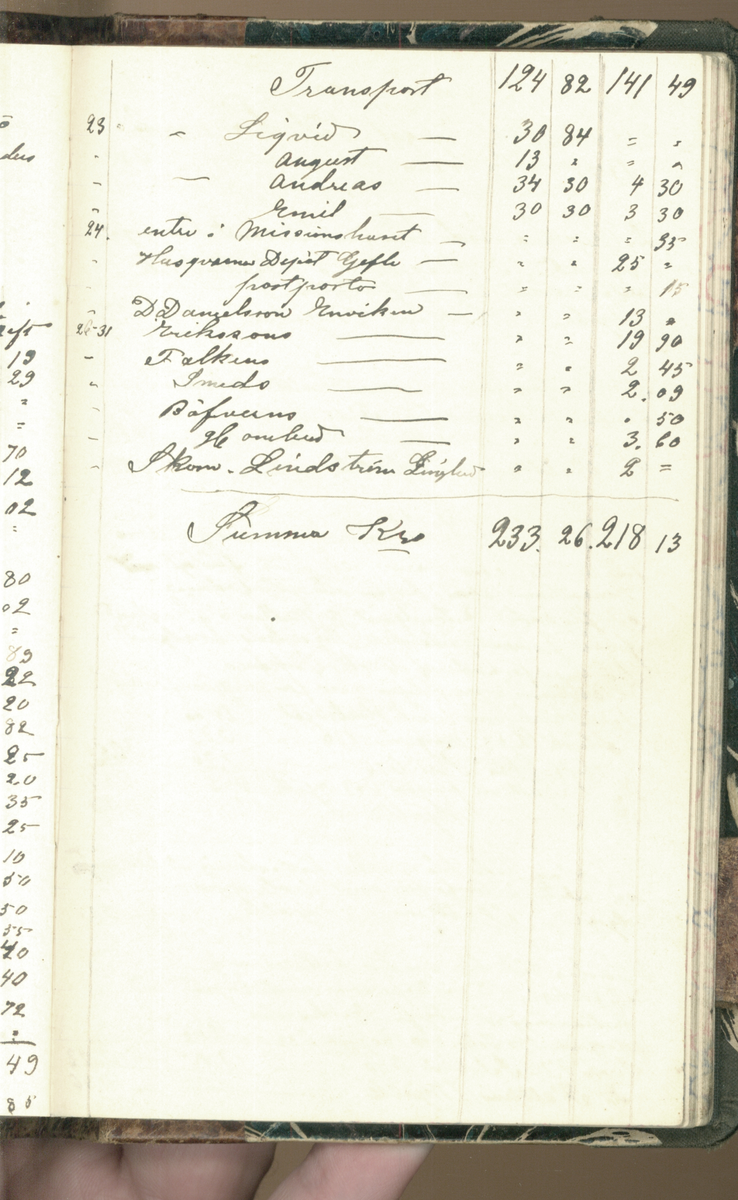 Transport 124 82 141 49
23 " Liqvid — 30 84 " "
" August — 13 " " "
" — Andreas — 34 30 4 30
" Emil — 30 30 3 30
24. entre i Missionshuset — " " " 35
" Husqvarna Depot Gefle — " " 25 "
" postporto — " " " 15
" D. Danielsson Enviken — " " 13 "
26-31 Erikssons — " " 19 90
" Falkens — " " 2 45
" Smeds — " " 2.09
" Bäfverns — " " . 50
" — " " 3.60
" Skom. Lindström " " 2 =
Summa Kro 233. 26. 218 13
19
29
"
"
70
12
02
"
80
02
"
89
22
20
82
25
20
35
25
10
50
50
55
40
72
"
49
85